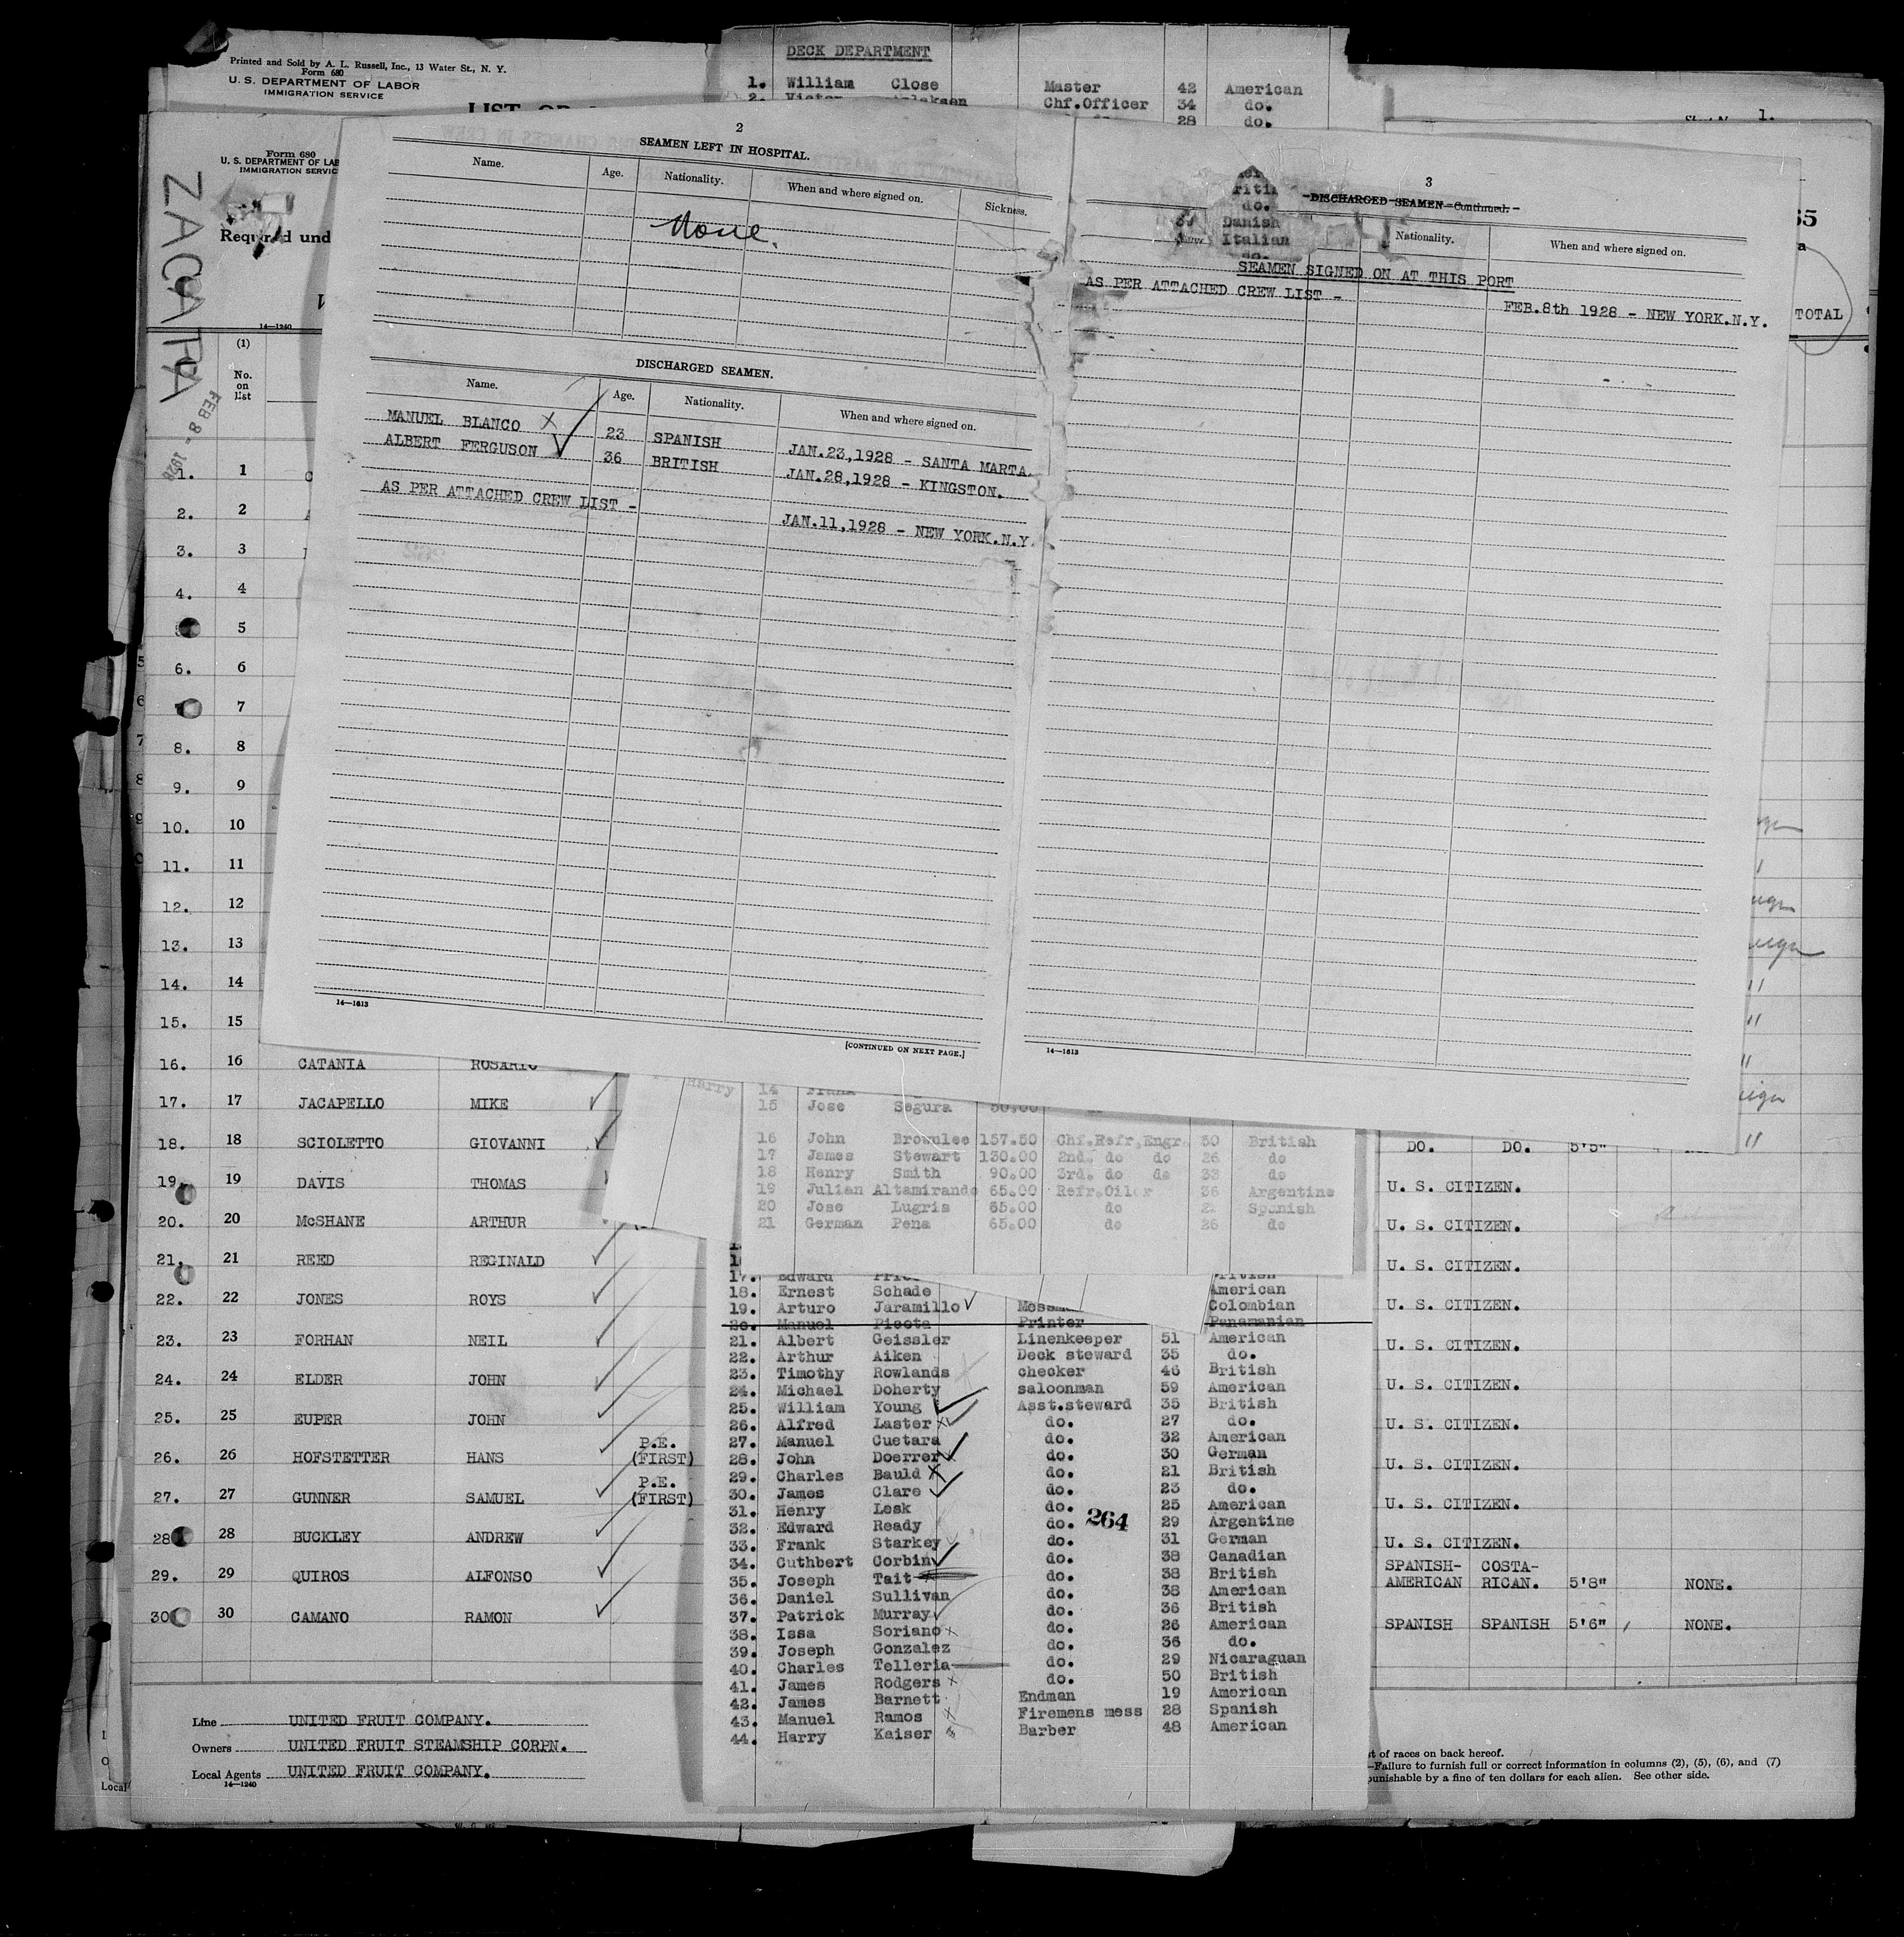 Printed and Sold by A. L. Russell, Inc., 13 Water St., N. Y.
Form 680
U. S. DEPARTMENT OF LABOR
IMMIGRATION SERVICE
DECK DEPARTMENT
1. William Close Master 42 American
2. Chf.Officer 34 do.
28 do.
1.
Form 680
U. S. DEPARTMENT OF LAB
IMMIGRATION SERVIC
Required und
14—1240
ZACAPA
FEB 8 - 1928
(1)
No. on list
TOTAL
2
SEAMEN LEFT IN HOSPITAL.
Name. Age. Nationality. When and where signed on. Sickness.
None.
DISCHARGED SEAMEN.
Name. Age. Nationality. When and where signed on.
MANUEL BLANCO X 23 SPANISH JAN.23,1928 - SANTA MARTA.
ALBERT FERGUSON 36 BRITISH JAN.28,1928 - KINGSTON.
AS PER ATTACHED CREW LIST - JAN.11,1928 - NEW YORK.N.Y.
14—1613
[CONTINUED ON NEXT PAGE.]
3
DISCHARGED SEAMEN—Continued.
do.
Danish
Italian
Nationality. When and where signed on.
SEAMEN SIGNED ON AT THIS PORT
AS PER ATTACHED CREW LIST - FEB.8th 1928 - NEW YORK.N.Y.
14—1613
1. 1
2. 2
3. 3
4. 4
5
6. 6
7
8. 8
9. 9
10. 10
11. 11
12. 12
13. 13
14. 14
15. 15
16. 16 CATANIA ROSARIO
17. 17 JACAPELLO MIKE
18. 18 SCIOLETTO GIOVANNI DO. DO. 5'5"
19. 19 DAVIS THOMAS U. S. CITIZEN.
20. 20 McSHANE ARTHUR U. S. CITIZEN.
21. 21 REED REGINALD U. S. CITIZEN.
22. 22 JONES ROYS U. S. CITIZEN.
23. 23 FORHAN NEIL U. S. CITIZEN.
24. 24 ELDER JOHN U. S. CITIZEN.
25. 25 EUPER JOHN U. S. CITIZEN.
26. 26 HOFSTETTER HANS P.E. (FIRST) U. S. CITIZEN.
27. 27 GUNNER SAMUEL P.E. (FIRST) U. S. CITIZEN.
28 28 BUCKLEY ANDREW U. S. CITIZEN.
29. 29 QUIROS ALFONSO SPANISH-AMERICAN COSTA-RICAN. 5'8" NONE.
30 30 CAMANO RAMON SPANISH SPANISH 5'6" NONE.
Line UNITED FRUIT COMPANY.
Owners UNITED FRUIT STEAMSHIP CORPN.
Local Agents UNITED FRUIT COMPANY.
14—1240
Harry
14
15 Jose Segura 50.00
16 John Brownlee 157.50 Chf.Refr.Engr. 50 British
17 James Stewart 130.00 2nd. do do 26 do
18 Henry Smith 90.00 3rd. do do 33 do
19 Julian Altamirando 65.00 Refr.Oiler 36 Argentine
20 Jose Lugris 65.00 do Spanish
21 German Pena 65.00 do 26 do
17. Edward
18. Ernest Schade American
19. Arturo Jaramillo Colombian
20. Manuel Picota Printer Panamanian
21. Albert Geissler Linenkeeper 51 American
22. Arthur Aiken Deck steward 35 do.
23. Timothy Rowlands checker 46 British
24. Michael Doherty saloonman 59 American
25. William Young Asst.steward 35 British
26. Alfred Laster do. 27 do.
27. Manuel Cuetara do. 32 American
28. John Doerrer do. 30 German
29. Charles Bauld do. 21 British
30. James Clare do. 23 do.
31. Henry Lesk do. 25 American
264
32. Edward Ready do. 29 Argentine
33. Frank Starkey do. 31 German
34. Cuthbert Corbin do. 38 Canadian
35. Joseph Tait do. 38 British
36. Daniel Sullivan do. 38 American
37. Patrick Murray do. 36 British
38. Issa Soriano do. 26 American
39. Joseph Gonzalez do. 36 do.
40. Charles Telleria do. 29 Nicaraguan
41. James Rodgers do. 50 British
42. James Barnett Endman 19 American
43. Manuel Ramos Firemens mess 28 Spanish
44. Harry Kaiser Barber 48 American
of races on back hereof.
—Failure to furnish full or correct information in columns (2), (5), (6), and (7)
punishable by a fine of ten dollars for each alien. See other side.